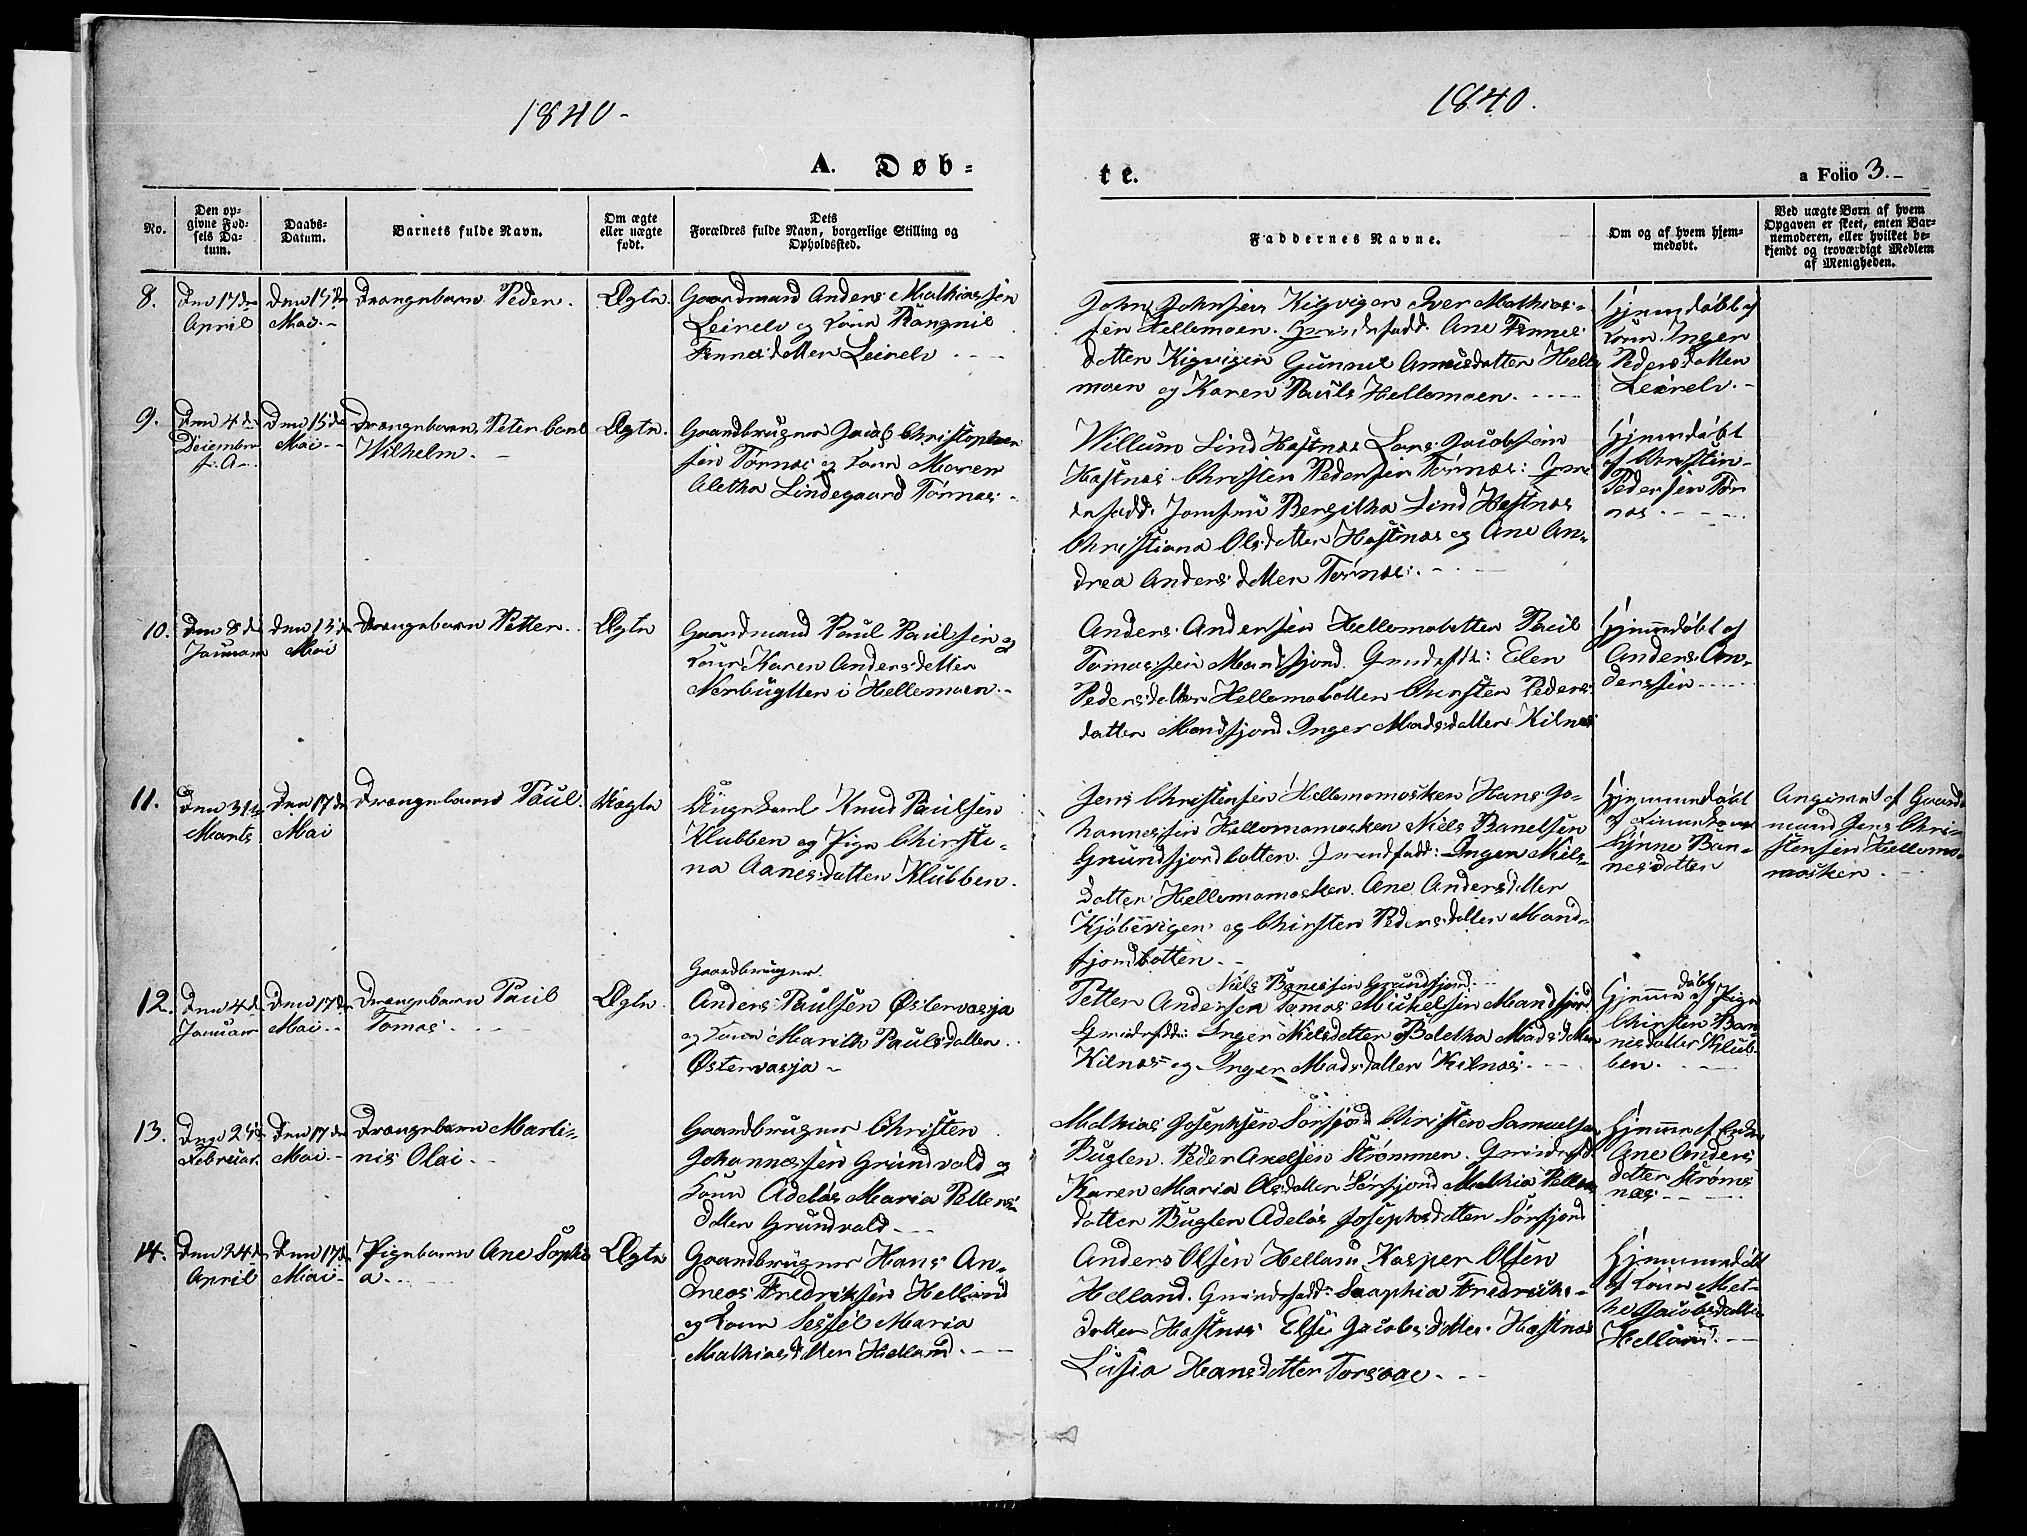 1840.
1840.
A. Døb=
te.
a Folio 3.
No.
Den op=
givne Fød=
sels Da=
tum.
Daabs=
Datum.
Barnets fulde Navn.
Om ægte
eller uægte
født.
Dets
Forældres fulde Navn, borgerlige Stilling og
Opholdssted.
Faddernes Navne.
Om og af hvem hjem=
medøbt.
Ved uægte Børn af hvem
Opgaven er skeet, enten Bar=
nemoderen, eller hvilket be=
kjendt og troværdigt Medlem
af Menigheden.
8.
Den 17de
April
Den 15de
Mai
Drængebarn Peder.
Ægte
Gaardmand Anders Mathiassen
Leirelv og Kone
datter Leirelv
John Johnsen Kigvigen Iver Mathias=
sen Hellemoen. Ane
datter Kigvigen Gunnel datter Helle
moen og Karen Pauls Hellemoen.
Hjemmedøbt af
Kone Inger
Pedersdatter
Leirelv.
9.
Den 4de
December
f. A.
Den 15de
Mai
Drængebarn Peter
Wilhelm.
Ægte.
Gaardbruger Jacob Christopher
sen Tørnes og Kone Maren
Aletha Lindegaard Tørnes
Willum Lind Hestnes Lars Jacobsen
Hestnes Christen Pedersen Tørnes:
Jomfru Bergitha Lind Hestnes
Christiana Olsdatter Hestnes og Ane An=
drea Andersdatter Tørnes.
Hjemmedøbt
af Christen
Pedersen Tør
nes
10.
Den 8de
Januar
Den 15de
Mai
Drængebarn Petter.
Ægte
Gaardmand Paul Paulsen og
Kone Karen Andersdatter
i Hellemoen.
Anders Andersen Hellemobotten Paul
Tomassen Mandfjord. Elen
Pedersdatter Hellemobotten Chirsten Peders
datter Mandfjord Inger Madsdatter Kilnes
Hjemmedøbt af
Anders An=
derssen
11.
Den 31te
Marts
Den 17de
Mai
Drængebarn Paul.
Uægte
Ungekarl Knud Paulsen
Klubben og Pige Chirsti=
na Aanesdatter Klubben.
Jens Christensen Hellemomosken Hans Jo=
hannessen Hellemomosken Niels Banelsen
Grundfjordbotten. Inger Niels=
datter Hellemomosken. Ane Andersdatter
Kjöbevigen og Chirsten Pedersdatter Mand=
fjordbotten.
Hjemmedøbt
af
Synne Ban=
nesdatter
Angivet af Gaard
mand Jens Chri=
stensen Hellemo=
mosken.
12.
Den 4de
Januar
Den 17de
Mai
Drængebarn Paul
Tomas.
Ægte.
Gaardbruger
Anders Paulsen Østervasja
og Kone Marith Paulsdatter
Østervasja
Niels Banessen Grundfjord
Petter Andersen Tomas Mickelsen Mandfjord
Inger Nielsdatter Boletha Madsdatter
Kilnes og Inger Madsdatter Kilnes.
Hjemmedøbt
af Pige
Chirsten Ban=
nesdatter Klub=
ben.
13.
Februar
Den 17de
Mai
Drængebarn Marti=
nis Olai
Gaardbruger Christen
Johannessen Grundvold og
Kone Adelös Maria Petters
datter Grundvold
Mathias Josephsen Sörfjord Christen Samuelsen
Buglen. Peder Axelsen Strömmen.
Karen Maria Olsdatter Sörfjord Mathia Petters
datter Buglen Adelös Josephsdatter Sörfjord
Hjemme af Enke
Ane Anders
datter Ströms
nes
14.
Den 24de
April
Den 17de
Mai
Pigebarn Ane Sophi
a.
Ægte
Gaardbruger Hans An=
dreas Fredriksen Helland
og Kone Sessel Maria
Mathiasdatter Helland.
Anders Olsen Helland Kasper Olsen
Helland. Saaphia Fredriks=
datter Hestnes Else Jacobsdatter Hestnes
Lusia Hansdatter
Hjemmedøbt
af Kone Met=
he Jacobsdatter
Helland.